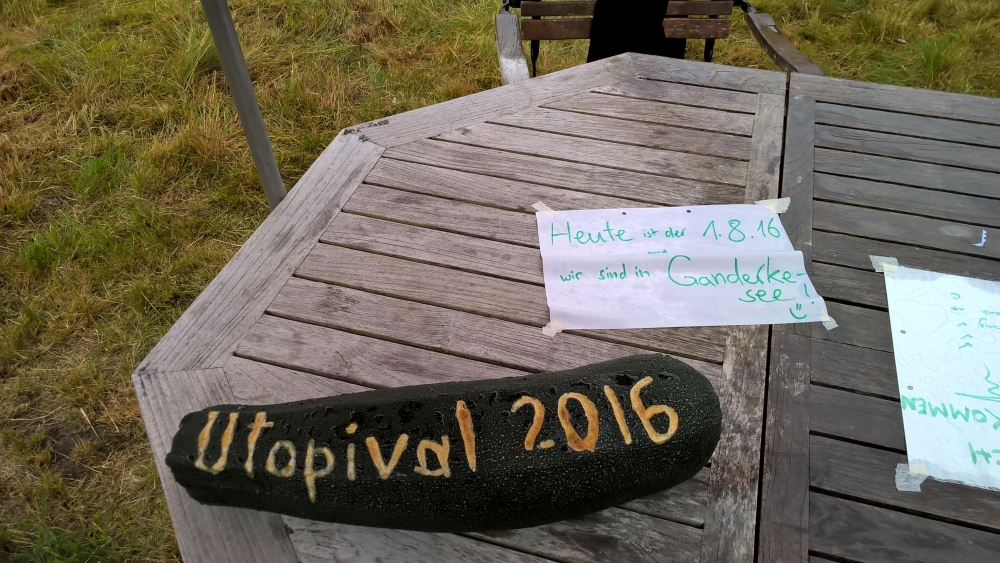 Heute ist der 1.8.16
und
wir sind in Ganderke-
see!
Utopival 2016
KOMMEN